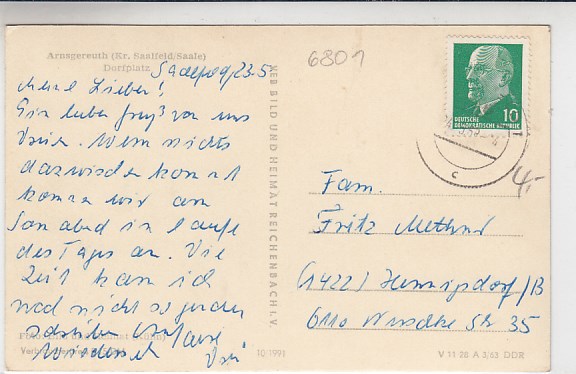 Arnsgereuth (Kr. Saalfeld/Saale)
Dorfplatz
23.5
Meine Lieben!
Ein lieber Gruß von uns
Wenn nichts
dazwischen kommt
kommen wir am
Sonnabend im Laufe
des Tages an. Die
Zeit kann ich
noch nicht so genau
schreiben
Wiedersehen
VEB BILD UND HEIMAT REICHENBACH I. V.
10 1991
6801
10
DEUTSCHE
DEMOKRATISCHE REPUBLIK
c
4,-
Fam.
Fritz
(1422) Hennigsdorf/B
Str 35
V 11-28 A 3/63 DDR